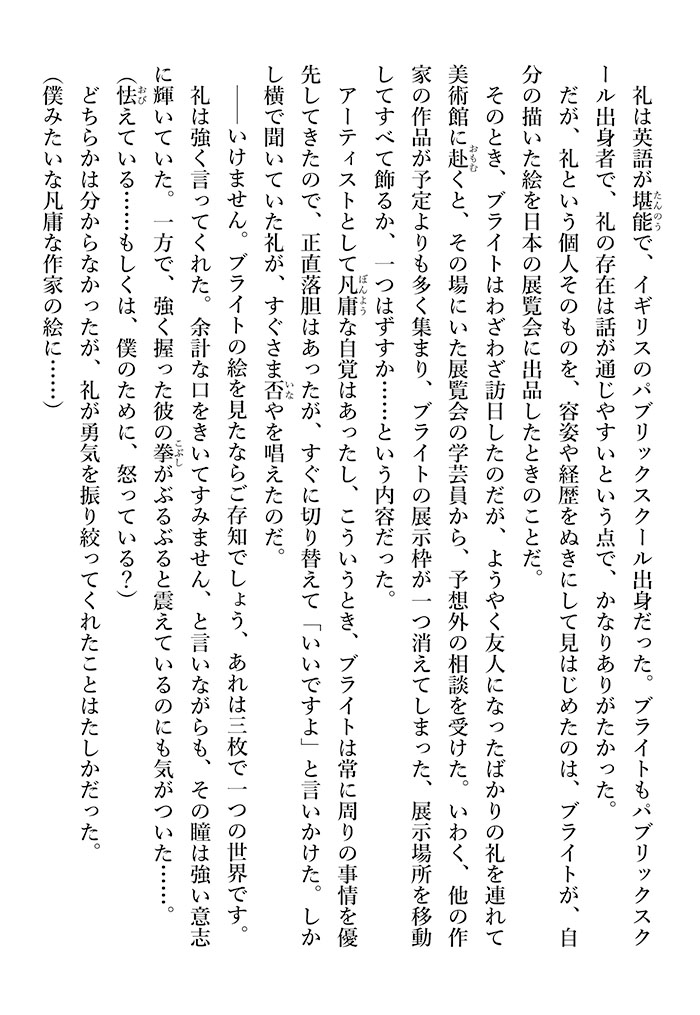 礼は英語が堪能で、イギリスのパブリックスクール出身だった。ブライトもパブリックスク
ール出身者で、礼の存在は話が通じやすいという点で、かなりありがたかった。
　だが、礼という個人そのものを、容姿や経歴をぬきにして見はじめたのは、ブライトが、自
分の描いた絵を日本の展覧会に出品したときのことだ。
　そのとき、ブライトはわざわざ訪日したのだが、ようやく友人になったばかりの礼を連れて
美術館に赴くと、その場にいた展覧会の学芸員から、予想外の相談を受けた。いわく、他の作
家の作品が予定よりも多く集まり、ブライトの展示枠が一つ消えてしまった、展示場所を移動
してすべて飾るか、一つはずすか……という内容だった。
　アーティストとして凡庸な自覚はあったし、こういうとき、ブライトは常に周りの事情を優
先してきたので、正直落胆はあったが、すぐに切り替えて「いいですよ」と言いかけた。しか
し横で聞いていた礼が、すぐさま否やを唱えたのだ。
　――いけません。ブライトの絵を見たならご存知でしょう、あれは三枚で一つの世界です。
　礼は強く言ってくれた。余計な口をきいてすみません、と言いながらも、その瞳は強い意志
に輝いていた。一方で、強く握った彼の拳がぶるぶると震えているのにも気がついた……。
（怯えている……もしくは、僕のために、怒っている？）
　どちらかは分からなかったが、礼が勇気を振り絞ってくれたことはたしかだった。
（僕みたいな凡庸な作家の絵に……）